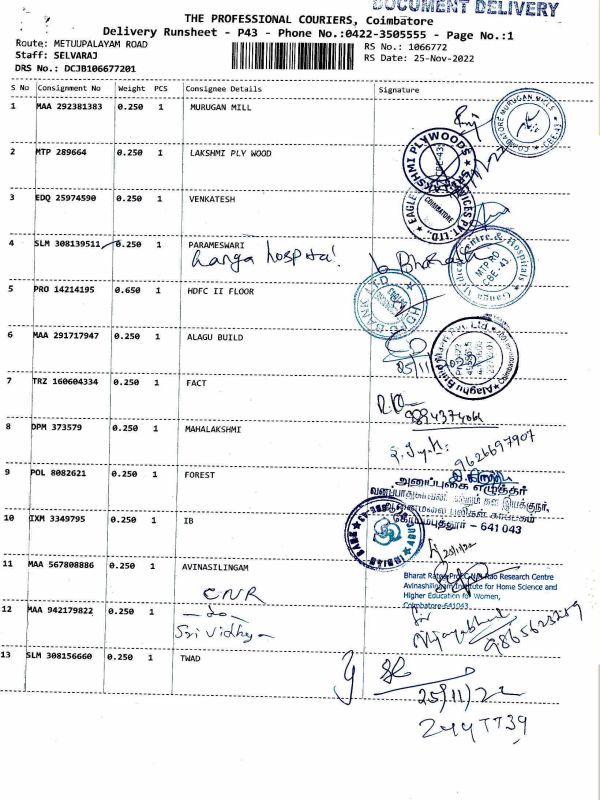 DOCUMENT DELIVERY
THE PROFESSIONAL COURIERS, Coimbatore
Delivery Runsheet - P43 - Phone No.:0422-3505555 - Page No.:1
Route: METUUPALAYAM ROAD
RS No.: 1066772
Staff: SELVARAJ
RS Date: 25-Nov-2022
DRS No.: DCJB106677201
S No Consignment No Weight PCS Consignee Details Signature
1 MAA 292381383 0.250 1 MURUGAN MILL
2 MTP 289664 0.250 1 LAKSHMI PLY WOOD
3 EDQ 25974590 0.250 1 VENKATESH
4 SLM 308139511 0.250 1 PARAMESWARI
Ganga hospital
5 PRO 14214195 0.650 1 HDFC II FLOOR
6 MAA 291717947 0.250 1 ALAGU BUILD
7 TRZ 160604334 0.250 1 FACT
8 DPM 373579 0.250 1 MAHALAKSHMI
9626697907
9 POL 8082621 0.250 1 FOREST
அனுப்புகை எழுத்தர்
கோயமுத்தூர் - 641 043
10 IXM 3349795 0.250 1 IB
11 MAA 567808886 0.250 1 AVINASILINGAM
CNR
Bharat Ratna Prof. C.N.R. Rao Research Centre
Avinashilingam Institute for Home Science and
Higher Education for Women,
Coimbatore-641043
12 MAA 942179822 0.250 1
- do -
Sri Vidhya
13 SLM 308156660 0.250 1 TWAD
25/11/22